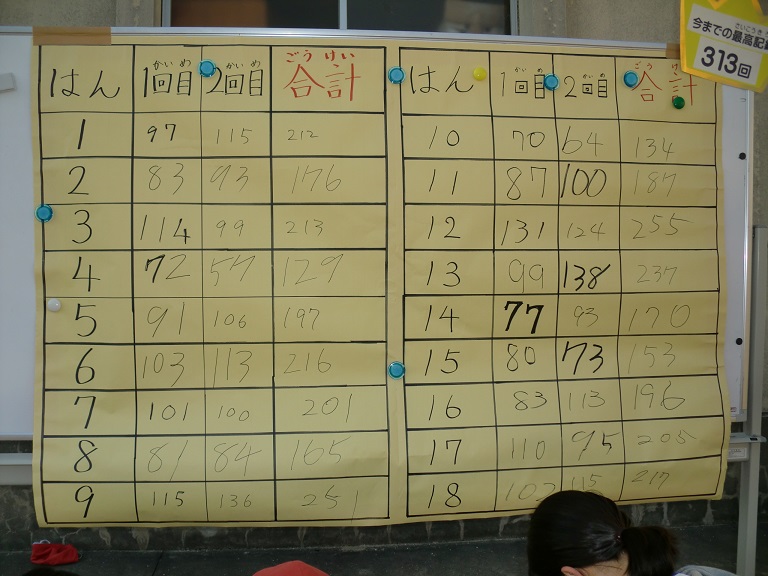 はん 1回目 2回目 合計
かいめ かいめ ごうけい
1 97 115 212
2 83 93 176
3 114 99 213
4 72 57 129
5 91 106 197
6 103 113 216
7 101 100 201
8 81 84 165
9 115 136 251
はん 1回目 2回目 合計
かいめ かいめ ごうけい
10 70 64 134
11 87 100 187
12 131 124 255
13 99 138 237
14 77 93 170
15 80 73 153
16 83 113 196
17 110 95 205
18 115 217
さいこうき
今までの最高記
313回